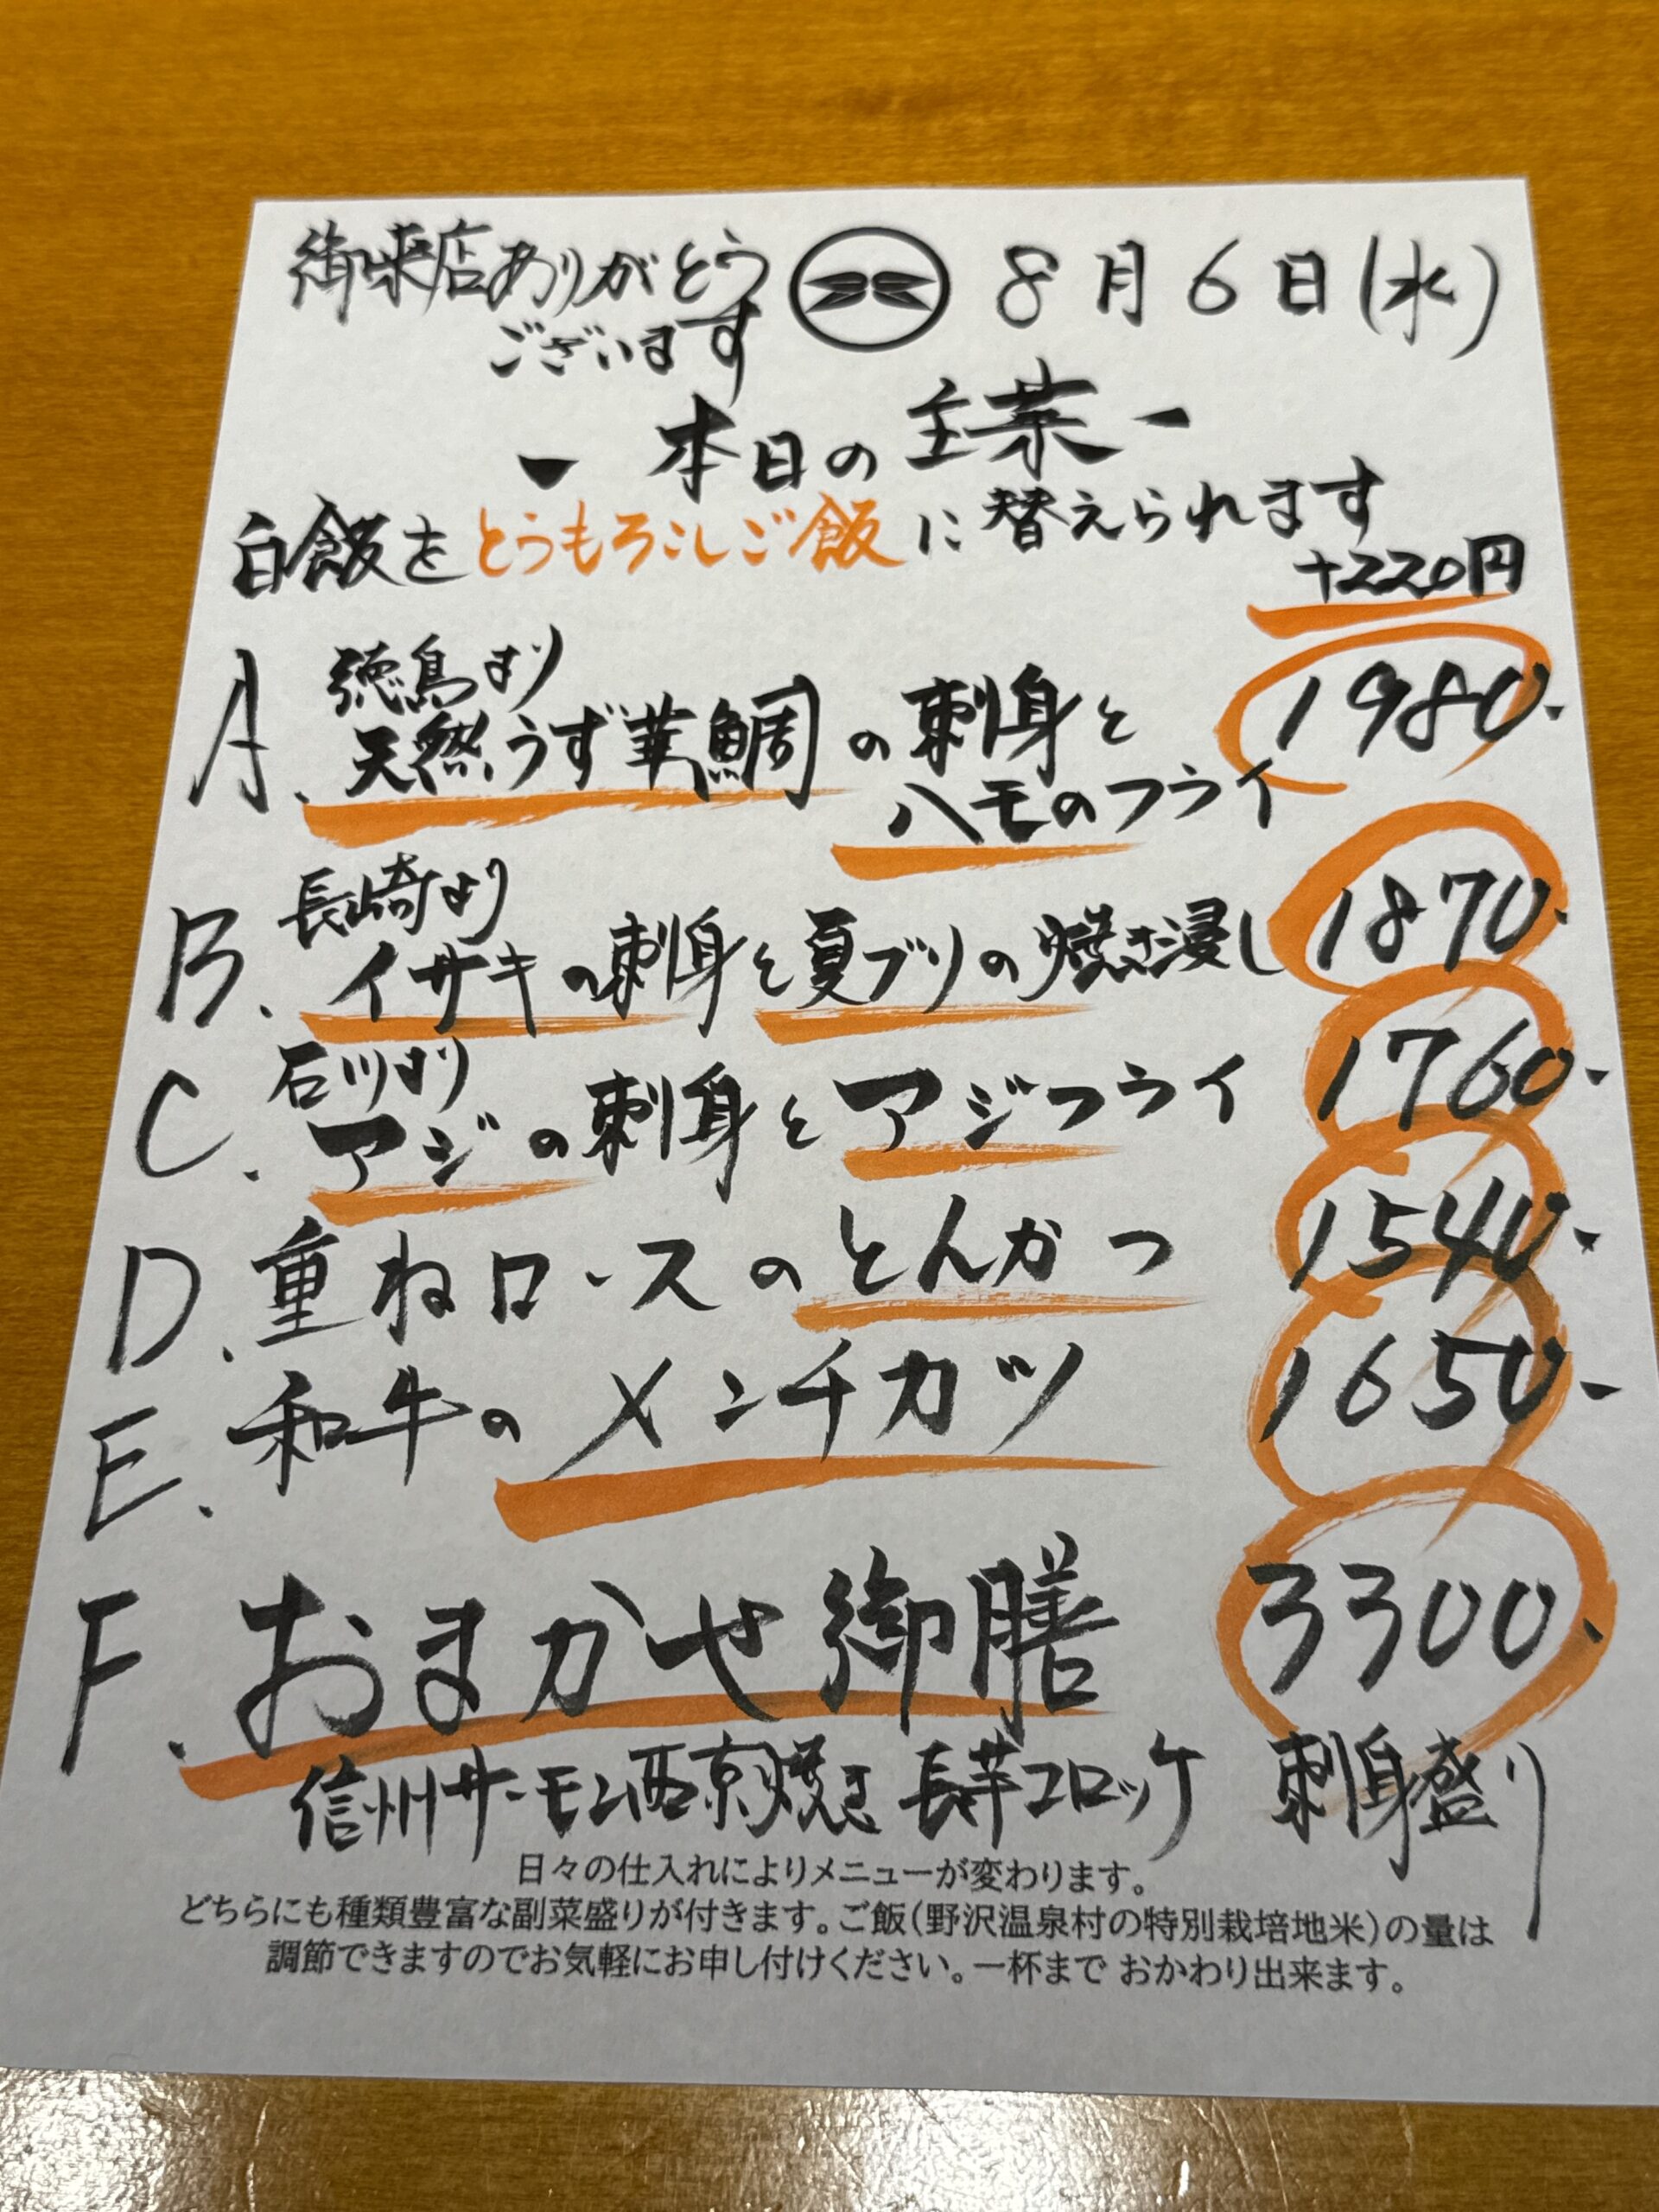 御来店ありがとう
ございます
8月6日(水)
- 本日の主菜 -
白飯をとうもろこしご飯に替えられます
+220円
A. 徳島より
天然うず華鯛の刺身と
ハモのフライ
1980.
B. 長崎より
イサキの刺身と夏ブリの焼き浸し 1870.
C. 石川より
アジの刺身とアジフライ 1760-
D. 重ねロースのとんかつ 1540-
E. 和牛のメンチカツ 1650-
F. おまかせ御膳 3300.
信州サーモン西京焼き 長芋コロッケ 刺身盛り
日々の仕入れによりメニューが変わります。
どちらにも種類豊富な副菜盛りが付きます。ご飯(野沢温泉村の特別栽培地米)の量は
調節できますのでお気軽にお申し付けください。一杯まで おかわり出来ます。